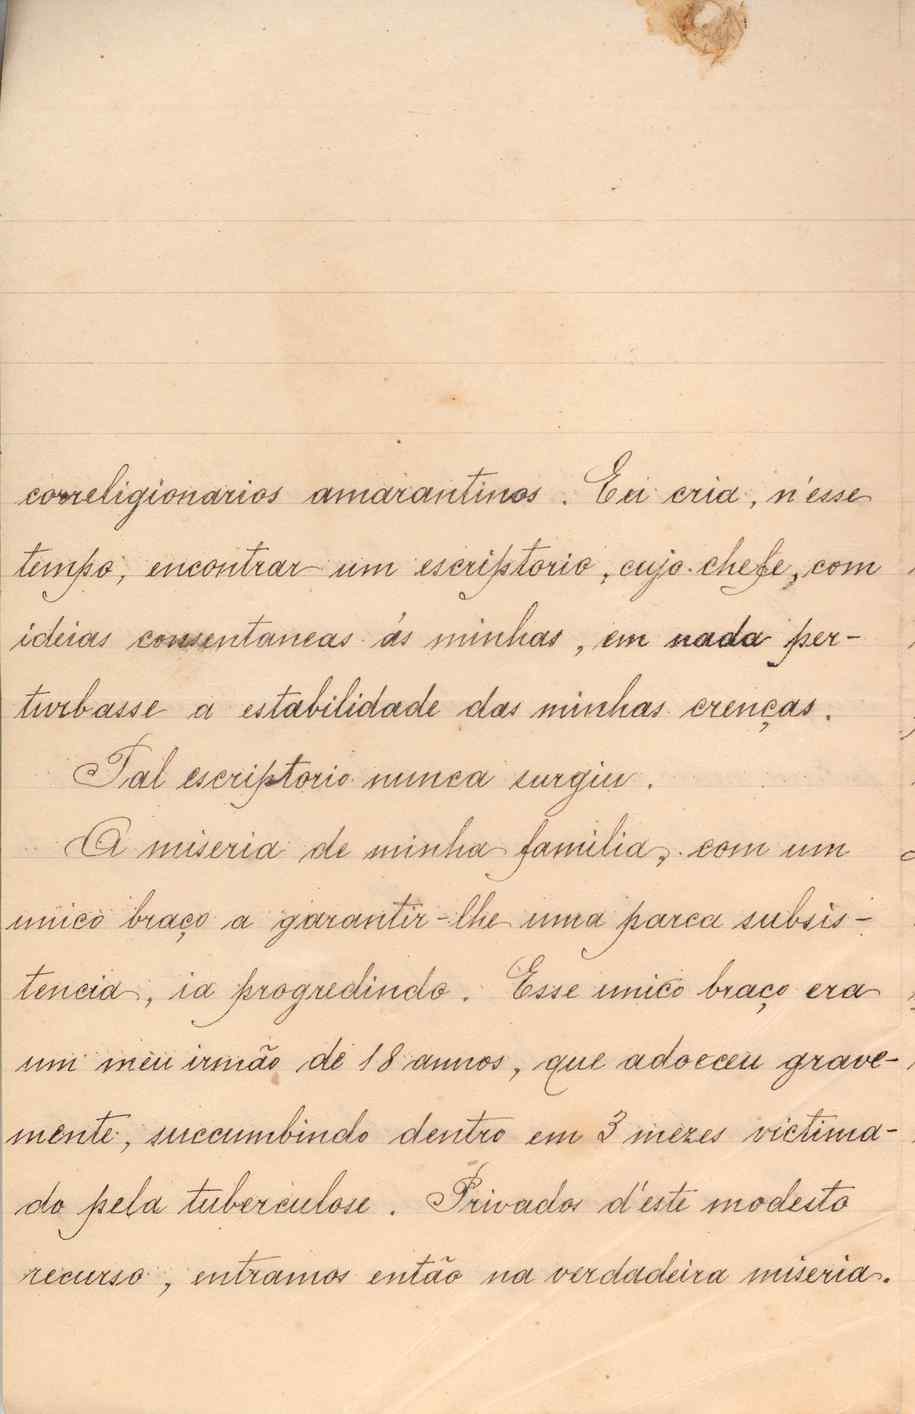 correligionarios amarantinos. Eu cria, n'esse
tempo, encontrar um escriptorio, cujo chefe, com
ideias consentaneas ás minhas, em nada per-
turbasse a estabilidade das minhas crenças.
Tal escriptorio nunca surgiu.
A miseria de minha familia, com um
unico braço a garantir-lhe uma parca subsis-
tencia, ia progredindo. Esse unico braço era
um meu irmão de 18 annos, que adoeceu grave-
mente, succumbindo dentro em 3 mezes victima-
do pela tuberculose. Privados d'este modesto
recurso, entramos então na verdadeira miseria.